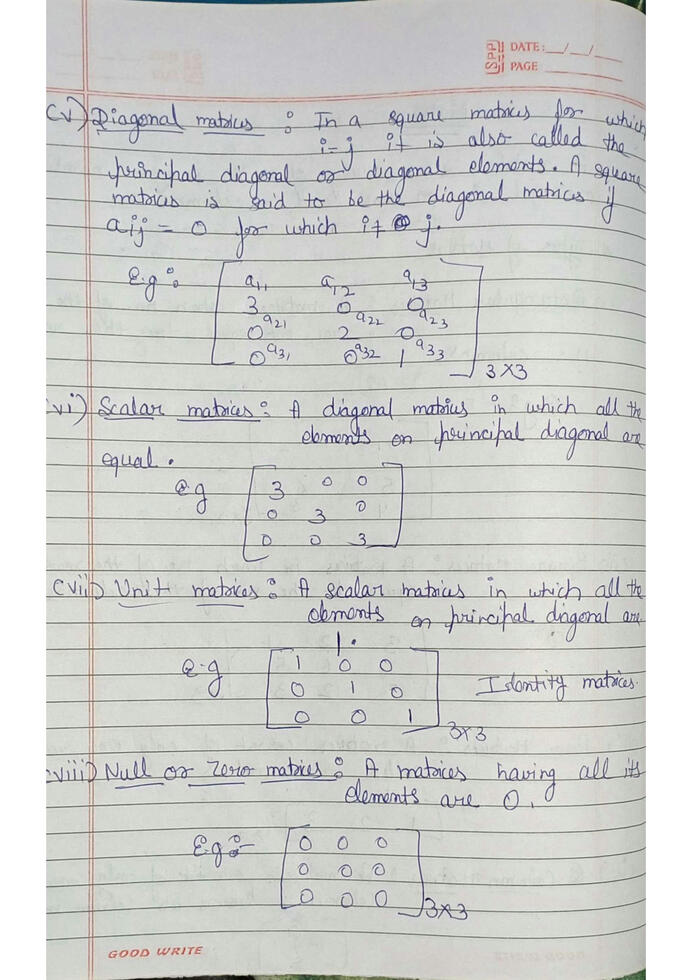 SPP DATE: __/__/__
PAGE
(v) Diagonal matrices : In a square matrices for which
i=j it is also called the
principal diagonal or diagonal elements. A square
matrices is said to be the diagonal matrices if
aij = 0 for which i≠ j.
E.g : a11 a12 a13
3 0 0
a21 a22 a23
0 2 0
0 a31 0 a32 1 a33
3×3
vi) Scalar matrices : A diagonal matrices in which all the
elements on principal diagonal are
equal.
e.g 3 0 0
0 3 0
0 0 3
(vii) Unit matrices : A scalar matrices in which all the
elements on principal diagonal are
1.
e.g 1 0 0
0 1 0 Identity matrices.
0 0 1
3×3
viii) Null or Zero matrices : A matrices having all its
elements are 0.
E.g :- 0 0 0
0 0 0
0 0 0
3×3
GOOD WRITE